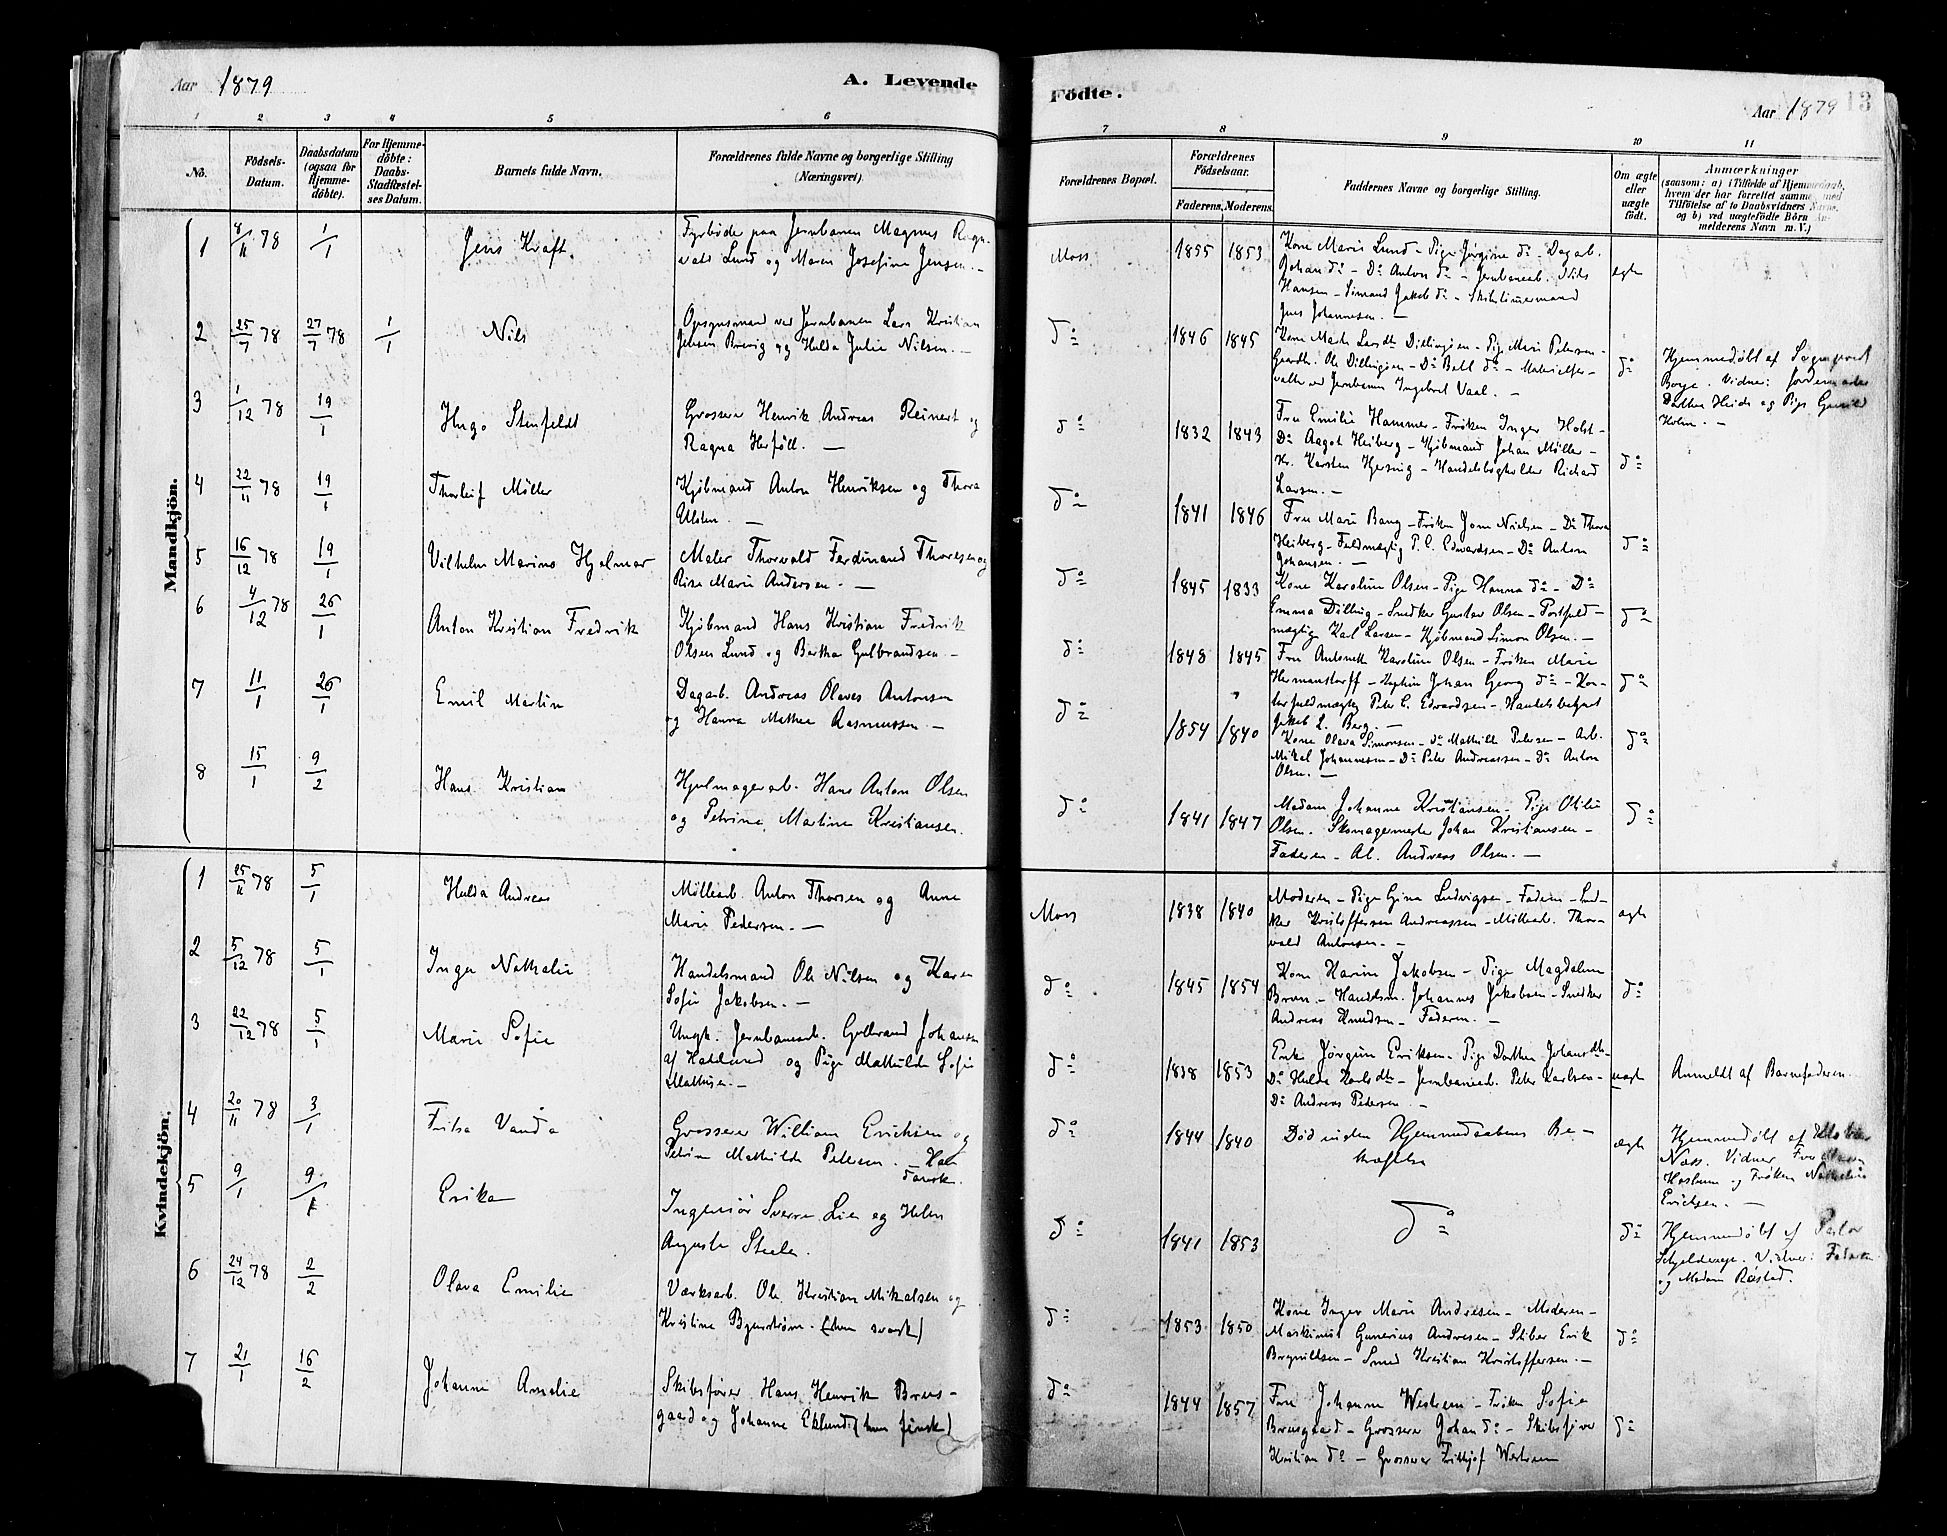 Aar 1879
A. Levende
Födte.
Aar 1879
13
1 2 3 4 5 6
7 8 9 10 11
No.
Födsels-Datum.
Daabsdatum (ogsaa for Hjemmedöbte).
For Hjemmedöbte: Daabs-Stadfæstelses Datum.
Barnets fulde Navn.
Forældrenes fulde Navne og borgerlige Stilling (Næringsvei).
Forældrenes Bopæl.
Forældrenes Födselsaar.
Faderens. Moderens.
Faddernes Navne og borgerlige Stilling.
Om ægte eller uægte födt.
Anmærkninger
(saasom: a) i Tilfælde af Hjemmedaab, hvem der har forrettet samme med Tilföielse af to Daabsvidners Navne, og b) ved uægtefödte Börn Anmelderens Navn m. V.)
Mandkjön.
1 8/11 78 1/1 Jens Kraft.
Fyrböder paa Jernbanen Magnus Ragn-
vald Lund og Maren Josefine Jensen. —
Moss 1855 1853
Kone Marie Lund - Pige Jørgine do - Dagarb.
Johan do - Do Anton do - Jernbanearb. Nils
Hansen - Sömand Jakob do - Skibstimmermand
Jens Johannesen. —
ægte
2 25/7 78 27/7 78 1/1 Nils
Opsynsmand ved Jernbanen Lars Kristian
Jensen Brevig og Hulda Julie Nilsen. —
do 1846 1845
Kone Marte Larsdr Dillingöen - Pige Mari Petersen -
Gaardbr. Ole Dillingöen - Do Batl do - Materielfor-
valter ved Jernbanen Ingebret Vaal. —
do
Hjemmedöbt af Sogneprest
Borge. Vidner: Jordemoder
Dorthea Heide og Pige Gunild
Holm. —
3 1/12 78 19/1 Hugo Stenfeldt
Grosserer Henrik Andreas Reinert og
Ragna Herföll. —
do 1832 1843
Fru Emilie Hammer - Fröken Inger Holst -
Do Aagot Heiberg - Kjöbmand Johan Möller -
Hr. Karsten Hjersing - Handelsbogholder Richard
Larsen. —
do
4 22/11 78 19/1 Thorleif Möller
Kjöbmand Anton Henriksen og Thora
Ulsten. —
do 1841 1846
Fru Marie Bang - Fröken Jonn Nielsen - Do Thora
Heiberg - Fuldmægtig P. C. Edvardsen - Do Anton
Johansen. —
do
5 16/12 78 19/1 Vilhelm Marino Hjalmar
Maler Thorvald Ferdinand Thoresen og
Rise Marie Andersen. —
do 1845 1833
Kone Karoline Olsen - Pige Hanna do - Do
Emma Dilling - Snedker Gustav Olsen - Postfuld-
mægtig Karl Larsen - Kjöbmand Simon Olsen. —
do
6 4/12 78 26/1 Anton Kristian Fredrik
Kjöbmand Hans Kristian Fredrik
Olsen Lund og Bertha Gulbrandsen -
do 1848 1845
Fru Antonette Karoline Olsen - Fröken Marie
Hermanstorff - Kaptein Johan Georg do - Kon-
torfuldmægtig Peter C. Edvardsen - Handelsbetjent
Jakob L. Berg. —
do
7 11/1 26/1 Emil Martin
Dagarb. Andreas Olaves Antonsen
og Hanna Mathea Rasmussen. —
do 1854 1840
Kone Olava Simonsen - do Mathilde Petersen - Arb.
Mikal Johannesen - Do Peter Andreassen - do Anton
Olsen. —
do
8 15/1 9/2 Hans Kristian
Hjulmagerarb. Hans Anton Olsen
og Petrine Martine Kristiansen.
do 1841 1847
Madam Johanne Kristiansen - Pige Otilie
Olsen. Skomagermester Johan Kristiansen -
Faderen - Al. Andreas Olsen. —
do
Kvindekjön.
1 25/11 78 5/1 Hulda Andrea
Möllearb. Anton Thorsen og Anne
Marie Pedersen. —
Moss 1838 1840
Moderen - Pige Gina Ludvigsen - Faderen - Snd-
ker Kristoffersen Andreassen - Möllearb. Thor-
vald Antonsen. —
ægte
2 5/12 78 5/1 Inga Nathalie
Handelsmand Ole Nilsen og Karen
Sofie Jakobsen. —
do 1845 1854
Kone Karine Jakobsen - Pige Magdalene
Bruun - Handelsm. Johannes Jakobsen - Snedker
Andreas Knudsen - Faderen. —
do
3 22/12 78 5/1 Marie Sofie
Ungk. Jernbanearb. Gulbrand Johansen
af Hadeland og Pige Mathilde Sofie
Mathisen —
do 1838 1853
Enke Jörgine Eriksen - Pige Dorthea Johansdtr -
Do Hulda Karlsdtr - Jernbanearb. Peter Karlsen -
Do Andreas Pedersen —
uægte
Anmeldt af Barnefaderen.
4 20/11 78 3/1 Fritsa Vanda
Grosserer William Erichsen og
Petrine Mathilde Petersen. — Han
Fransk.
do 1844 1840
Död inden Hjemmedaabens Be-
kræftelse
ægte
Hjemmedöbt af
Næss. Vidner Fru
Haslum og Fröken Nathalie
Erichsen. —
5 9/1 9/1 Erika
Ingeniör Sverre Lie og Helen
Augusta Steele.
do 1841 1853
do
do
Hjemmedöbt af Pastor
Schjelderup. Vidner: Faderen
og Madam Röstad.
6 24/12 78 2/2 Olava Emilie
Værksarb. Ole Kristian Mikalsen og
Kristine Bjurström. (hun svensk)
do 1853 1850
Kone Inger Marie Andresen - Moderen -
Maskinist Gunerius Andresen - Stiber Erik
Borgnillsen - Smed Kristian Kristoffersen. —
do
7 21/1 16/2 Johanne Amalie
Skibsförer Hans Henrik Breus-
gaard og Johanne Eklund (hun finsk)
do 1844 1857
Fru Johanne Westrem - Fröken Sofie
Breusgaard - Grosserer Johan do - Skibsförer
Kristian do - Grosserer Fritjof Westreem
do